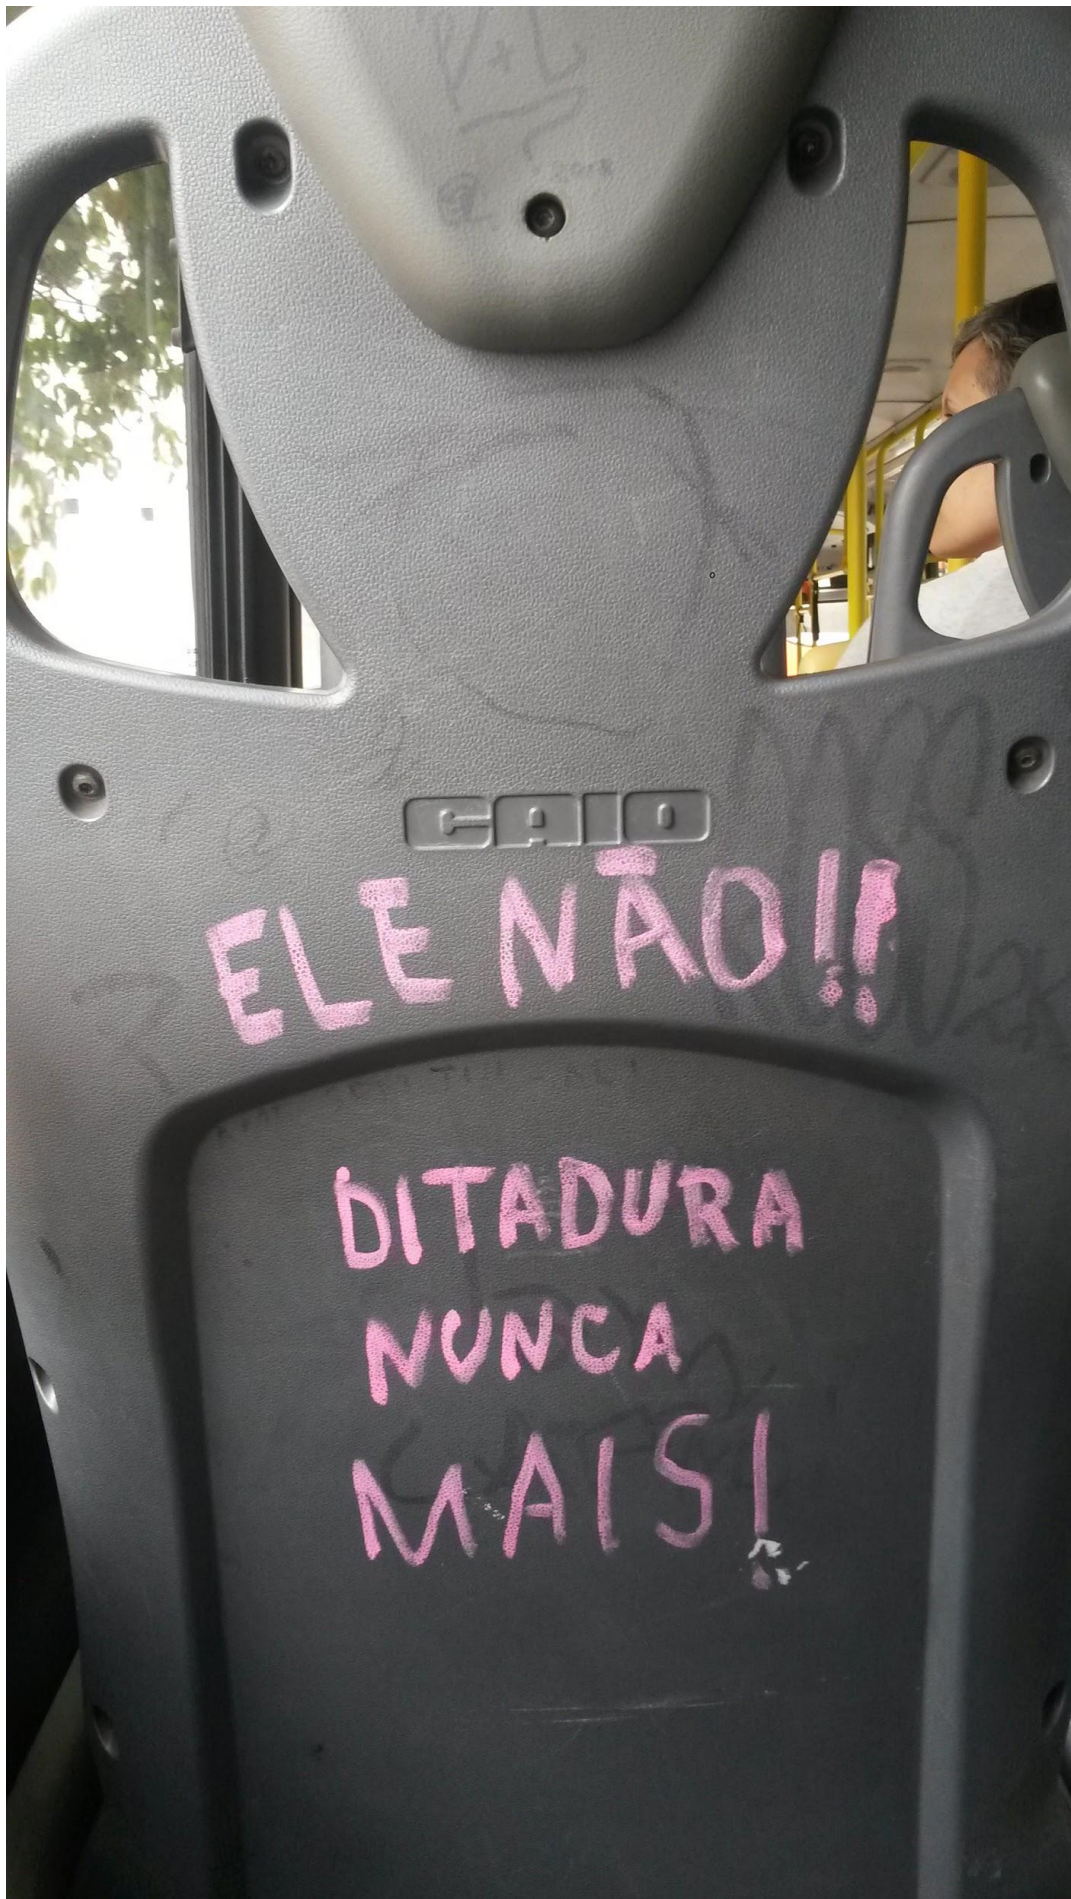 CAIO
ELE NÃO!!
DITADURA
NUNCA
MAIS!